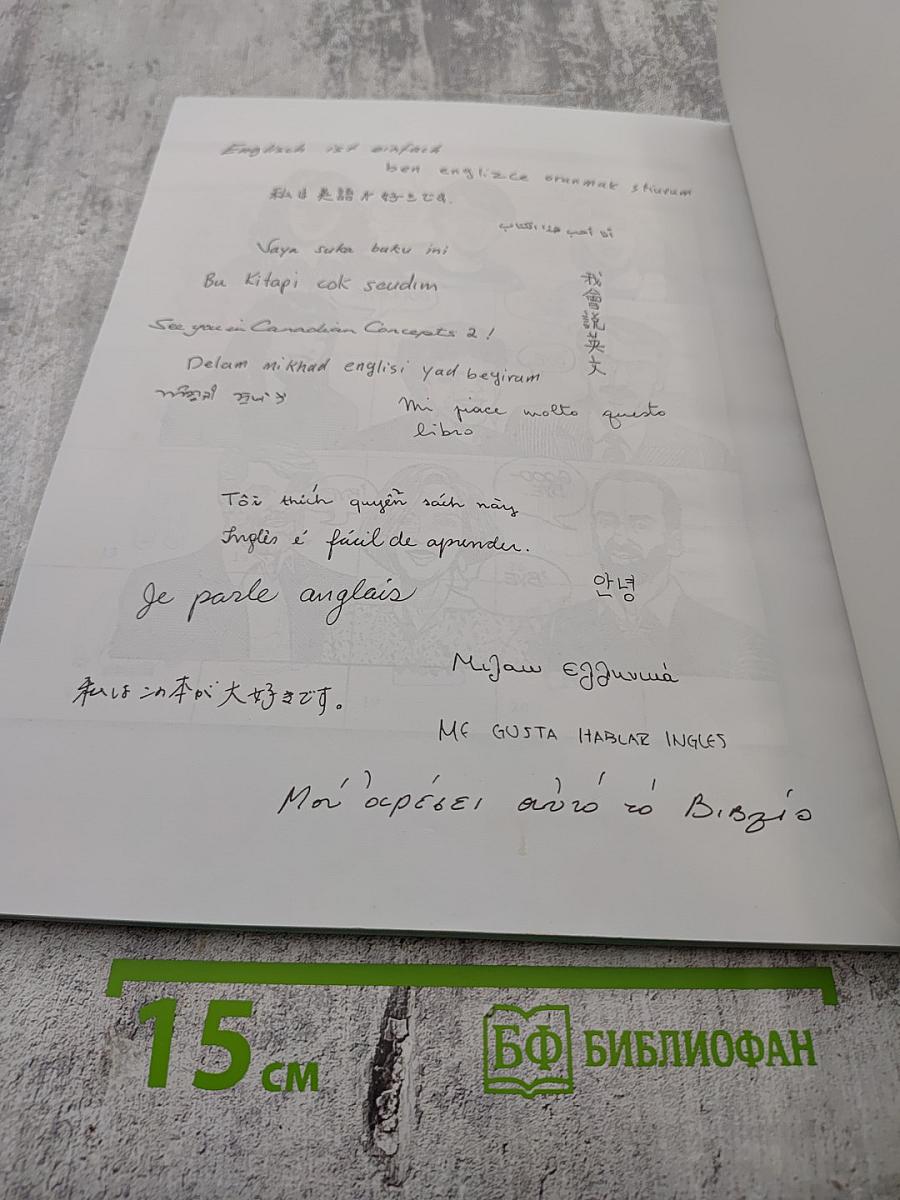 Englisch ist einfach
ben englizce oranmak stiurum
私は英語が好きです。
أنا أحب هذا الكتاب
Vaya suka buku ini
Bu Kitapi cok seudim
我會說英文
See you in Canadian Concepts 2!
Delam mikhad englisi yad begiram
Mi piace molto questo
libro
Tôi thích quyển sách này
Inglês é fácil de aprender.
Je parle anglais
안녕
Μιλαω ελληνικά
私はこの本が大好きです。
ME GUSTA HABLAR INGLES
Μού ἀρέσει αὐτό τό Βιβλίο
15 см
БФ БИБЛИОФАН